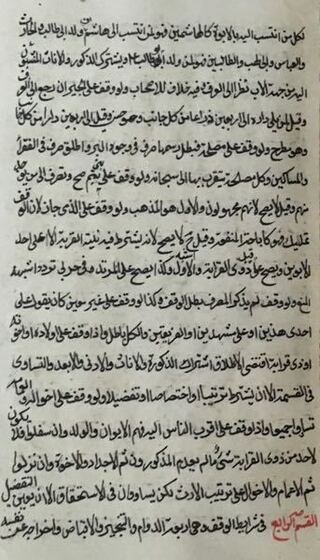 لكل من انتسب اليه بالابوة كالهاشميين فهو لمن انتسب الى هاشم من ولد ابي طالب والحارث
والعباس وابي لهب والطالبيين فهو لمن ولده ابو طالب ويشترك الذكور والاناث المنسوبون
اليه من جهة الاب نظرا الى العرف وفيه خلاف للاصحاب ولو وقف على الجيران رجع الى العرف
وقيل لمن يلي داره الى اربعين ذراعا من كل جانب وهو حسن وقيل الى اربعين دارا من كل جانب
وهو مطرح ولو وقف على مصلحة فبطل رسمها صرف في وجوه البر واطلق صرف في الفقراء
والمساكين وكل مصلحة يتقرب بها الى الله سبحانه ولو وقف على بني تميم صح وتصرف الى من يوجد
منهم وقيل لا يصح لانهم مجهولون والاول هو المذهب ولو وقف على الذمي جاز لان الوقف
تمليك فهو كاباحة المنفعة وقيل لا يصح لانه يشترط فيه نية القربة الا على احد
الابوين وقيل يصح على ذوي القرابة والاول اشبه وكذا يصح على المرتد وفي الحربي تردد اشبهه
المنع ولو وقف ولم يذكر المصرف بطل الوقف وكذا لو وقف على غير معين كان يقول على
احدى هذين او على مشهدين او الفريقين والكل باطل واذا وقف على اولاده او اخوته
او ذوي قرابته اقتضى الاطلاق اشتراك الذكور والاناث والادنى والابعد والتساوي
في القسمة الا ان يشترط ترتيبا او اختصاصا او تفضيلا ولو وقف على اخواله واعمامه
تساووا جميعا واذا وقف على اقرب الناس اليه فهم الابوان والولد وان سفلوا فلا يكون
لاحد من ذوي القرابة شيء مالم يعدم المذكورون ثم الاجداد والاخوة وان نزلوا
ثم الاعمام والاخوال على ترتيب الارث لكن يتساوون في الاستحقاق الا ان يعين التفضيل
القسم الرابع في شرايط الوقف وهي اربعة الدوام والتنجيز والاقباض واخراجه عن نفسه